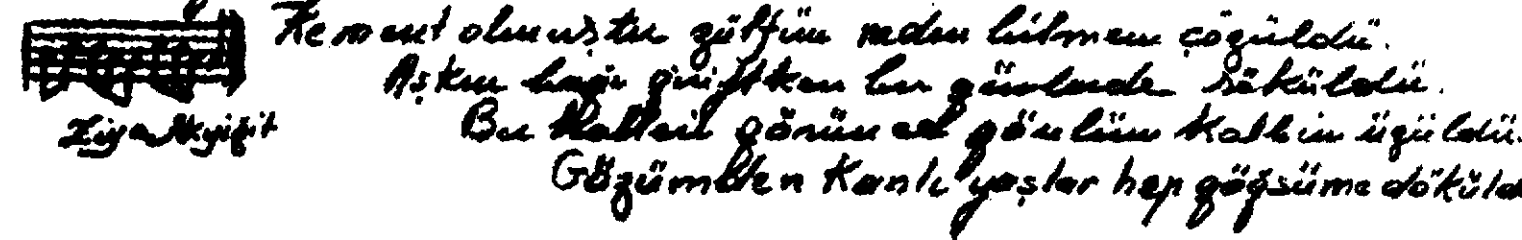 Kement olmuştu zülfün neden bilmem çözüldü.
Aşkın bağı giriftken bu günlerde söküldü.
Bu halleri görünce gönlüm kalbim üzüldü.
Gözümden kanlı yaşlar hep göğsüme döküld
Ziya Akyiğit